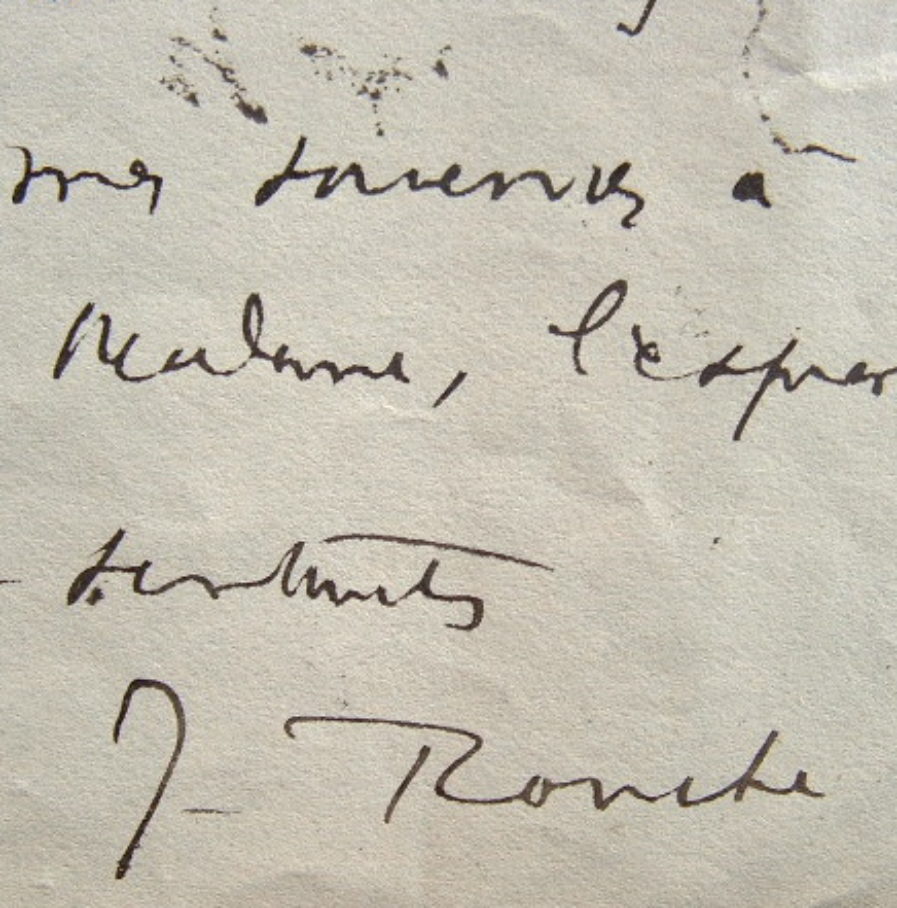 mes souvenirs à
Madame, l'expres
sentiments
J-